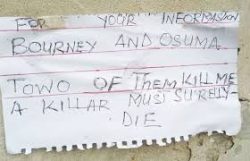 FOR YOUR INFORMASION
BOURNEY AND OSUMA
TOWO OF THEM KILL ME
A KILLAR MUST SURELY-
DIE